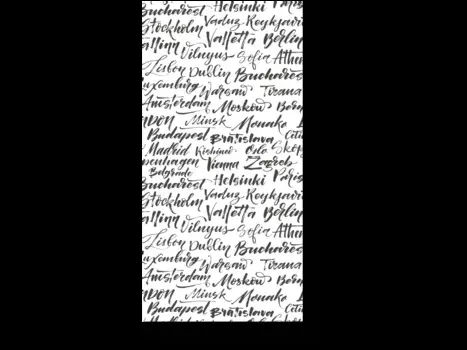 Bucharest Helsinki Paris
Stockholm Vaduz Reykjavik
Tallinn Valletta Berlin
Vilnyus Sofia Athen
Lisbon Dublin Bucharest
Luxemburg Warsaw Tirana
Amsterdam Moskow Bern
London Minsk Monako
Budapest Bratislava Citi
Madrid Kishinev Oslo Skop
openhagen Vienna Zagreb
Belgrade
Bucharest Helsinki Paris
Stockholm Vaduz Reykjavi
Tallinn Valletta Berlin
Vilnyus Sofia Athen
Lisbon Dublin Bucharest
Luxemburg Warsaw Tirana
Amsterdam Moskow Bern
NDON Minsk Monako
Budapest Bratislava Citi